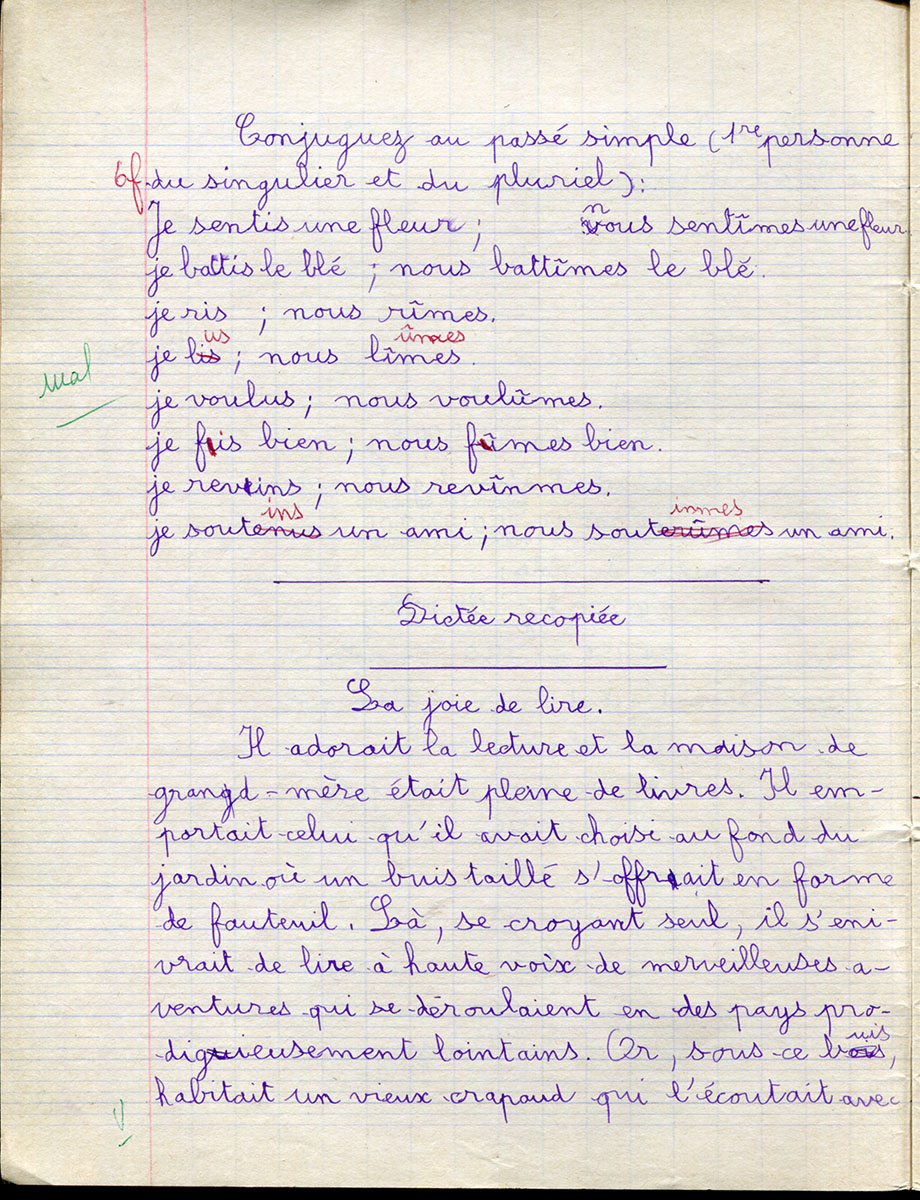 Conjuguez au passé simple (1re personne
6f du singulier et du pluriel) :
Je sentis une fleur ; nous sentîmes une fleur
je battis le blé ; nous battîmes le blé.
je ris ; nous rîmes.
us ûmes
je lis ; nous lîmes.
mal
je voulus ; nous voulûmes.
je fis bien ; nous fîmes bien.
je revins ; nous revînmes.
ins inmes
je soutenus un ami ; nous soutenûmes un ami.
Dictée recopiée
La joie de lire.
Il adorait la lecture et la maison de
grand-mère était pleine de livres. Il em-
portait celui qu'il avait choisi au fond du
jardin où un buis taillé s'offrait en forme
de fauteuil. Là, se croyant seul, il s'eni-
vrait de lire à haute voix de merveilleuses a-
ventures qui se déroulaient en des pays pro-
digieusement lointains. Or, sous ce buis,
habitait un vieux crapaud qui l'écoutait avec